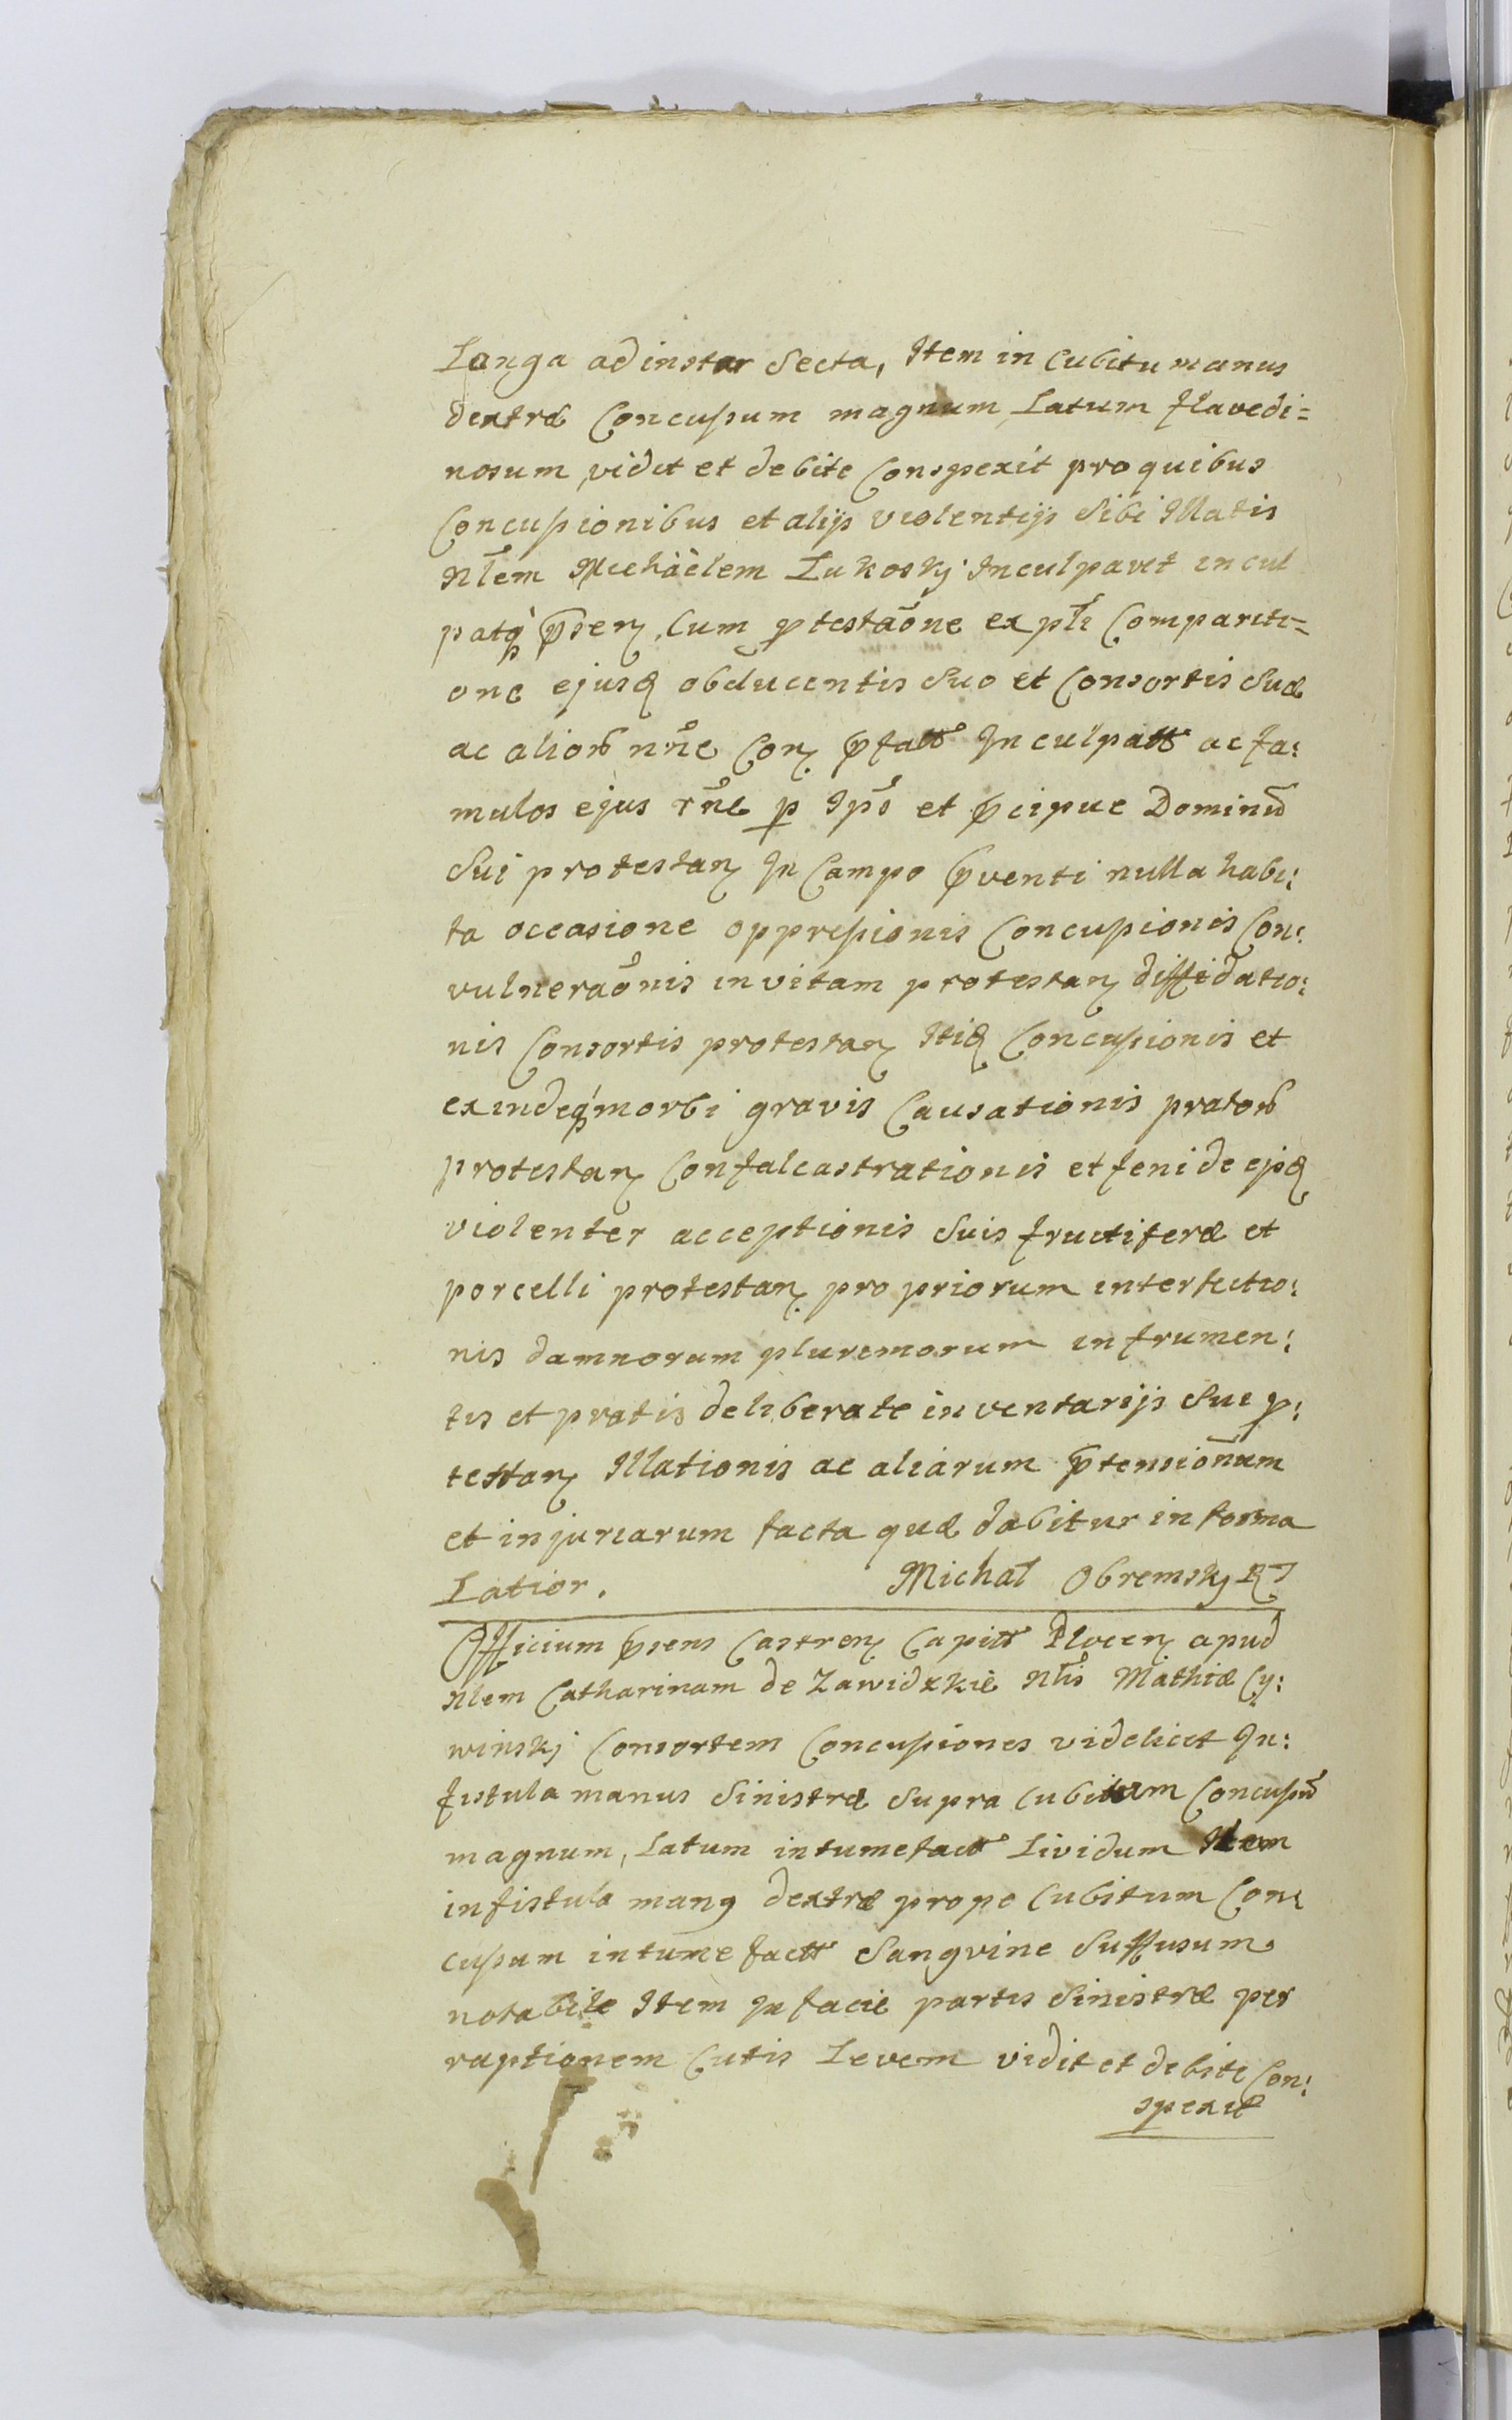 Longa ad instar Secta, Item in Cubitu manus
dextræ Concussum magnum Latum flavedi=
nosum, vidit et debite Conspexit pro quibus
Concussionibus et alijs violentijs Sibi Illatis
Nłem Michäèlem Lukoskj Inculpavit incul
patq̨ p̄sen, Cum ꝓtestaōne ex płi Compariti=
one ejusq obducentis Suo et Consortis Suæ
ac alior nr̃ie Con p̄fatt Inculpatt ac fa:
mulos ejus rñe p Ips et p̄cipue Dominū
Sui protestan In Campo p̄venti nulla habi:
ta occasione oppressionis Concussionis Con:
vulneraōnis in vitam protestan diffidatio:
nis Consortis protestan Itiq Concussionis et
exindeq́ morbi gravis Causationis prator
protestan Confalcastrationis et feni de ejsq
violenter acceptionis Suis fructiferæ et
porcelli protestan propriorum interfectio:
nis damnorum plurimorum in frumen:
tis et pratis deliberate inventarijs Sui ꝓ:
testan Illationis ac aliarum p̄tensionum
et injuriarum facta quæ dabitur in forma
Latior. Michał Obremskj RT
Officium p̄sens Castren Capitt Plocen apud
Nłem Catharinam de Zawidzkie Nłis Mathiæ Cy:
winskj Consortem Concussiones videlicet In:
fistula manus Sinistræ Supra Cubitum Concussū
magnum, Latum intumefactt Lividum Item
in fistula manq dextræ prope Cubitum Con:
cussum intumefactt Sangvine Suffusum
notabile Item In facie partis Sinistræ per
raptionem Cutis Levem vidit et debite Con:
spexit